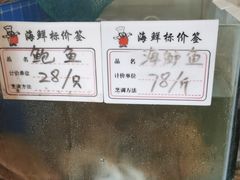 海鲜标价签
品名 鲍鱼
计价单位 28/只
烹调方法
海鲜标价签
品名 海鲈鱼
计价单位 78/斤
烹调方法